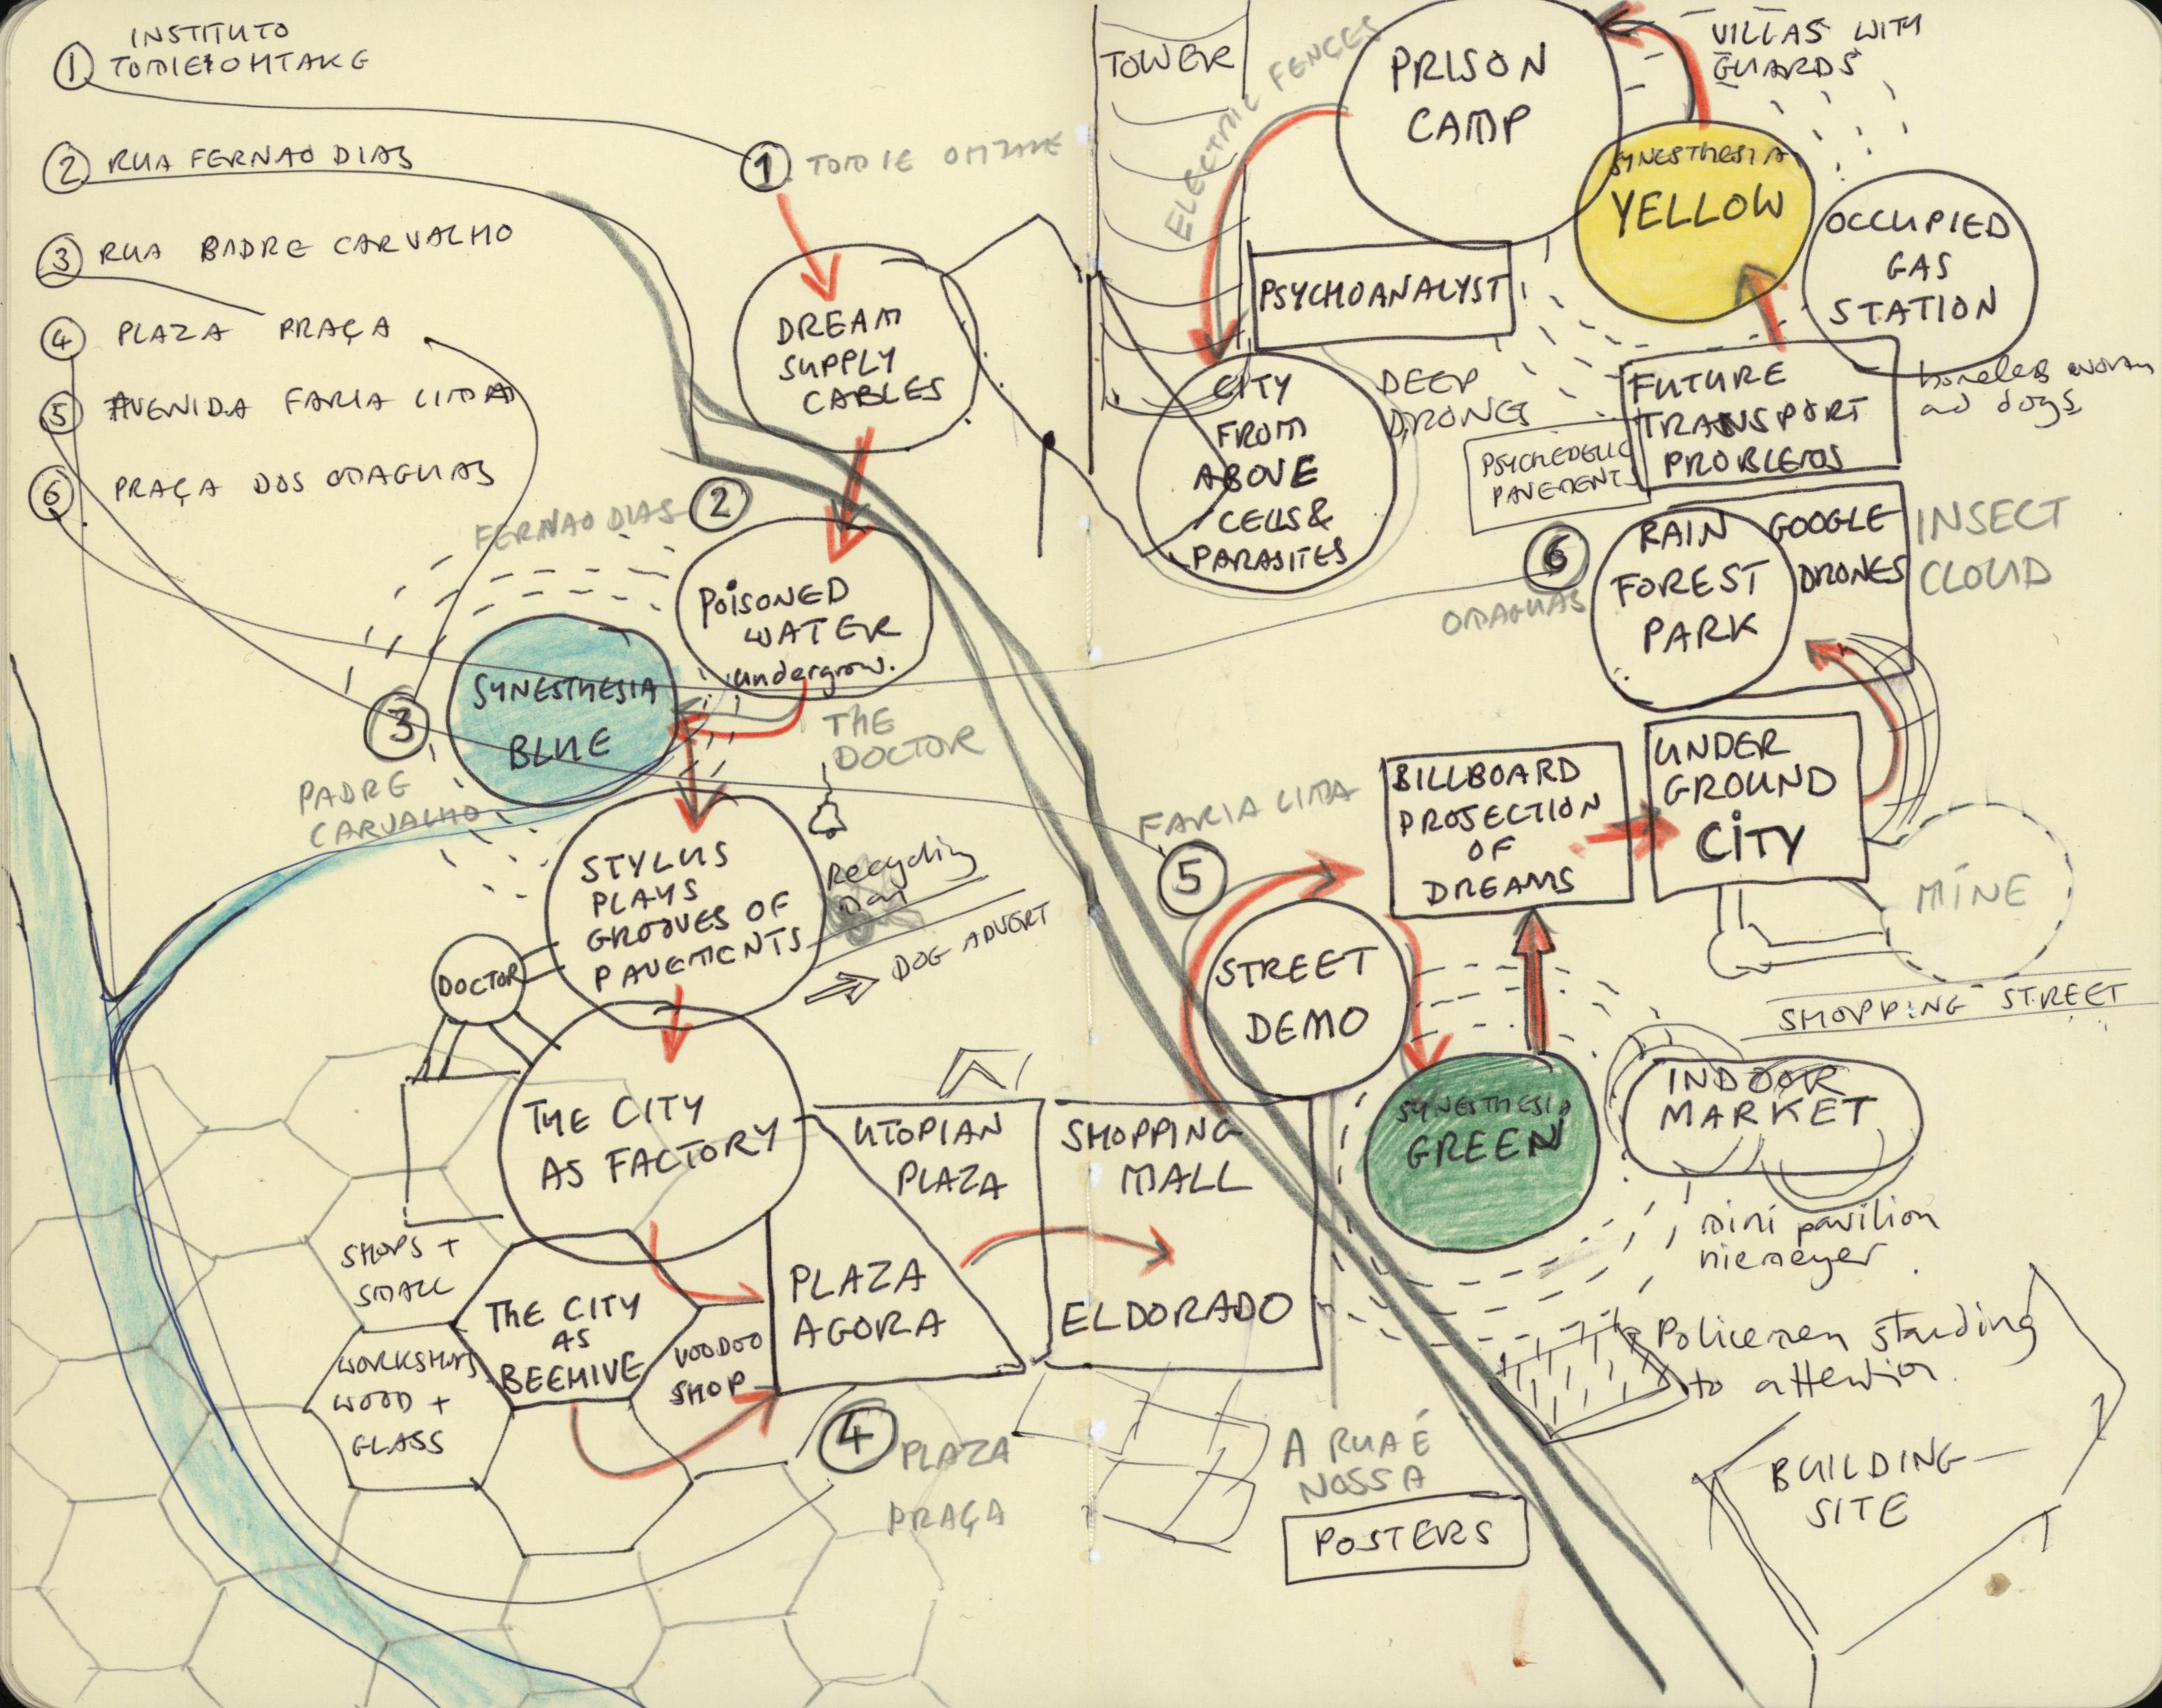 ① INSTITUTO
TOMIE OHTAKE
② RUA FERNAO DIAS
③ RUA PADRE CARVALHO
④ PLAZA PRAÇA
⑤ AVENIDA FARIA LIMA
⑥ PRAÇA DOS OMAGUAS
① TOMIE OHTAKE
DREAM
SUPPLY
CABLES
FERNAO DIAS ②
POISONED
WATER
undergrow.
SYNESTHESIA
BLUE
③
PADRE
CARVALHO
THE
DOCTOR
STYLUS
PLAYS
GROOVES OF
PAVEMENTS
Recycling
DOG ADVERT
DOCTOR
THE CITY
AS FACTORY
UTOPIAN
PLAZA
PLAZA
AGORA
SHOPS +
SMALL
WORKSHOPS
WOOD +
GLASS
THE CITY
AS
BEEHIVE
VOODOO
SHOP
④ PLAZA
PRAÇA
SHOPPING
MALL
ELDORADO
TOWER
ELECTRIC FENCES
PRISON
CAMP
VILLAS WITH
GUARDS
SYNESTHESIA
YELLOW
OCCUPIED
GAS
STATION
homeless woman
and dogs
PSYCHOANALYST
CITY
FROM
ABOVE
CELLS &
PARASITES
DEEP
DRONES
PSYCHEDELIC
PAVEMENTS
FUTURE
TRANSPORT
PROBLEMS
⑥
OMAGUAS
RAIN
FOREST
PARK
GOOGLE
DRONES
INSECT
CLOUD
FARIA LIMA
⑤
BILLBOARD
PROJECTION
OF
DREAMS
UNDER
GROUND
CITY
MINE
STREET
DEMO
SHOPPING STREET
SYNESTHESIA
GREEN
INDOOR
MARKET
mini pavilion
niemeyer
Policemen standing
to attention
A RUA É
NOSSA
POSTERS
BUILDING
SITE